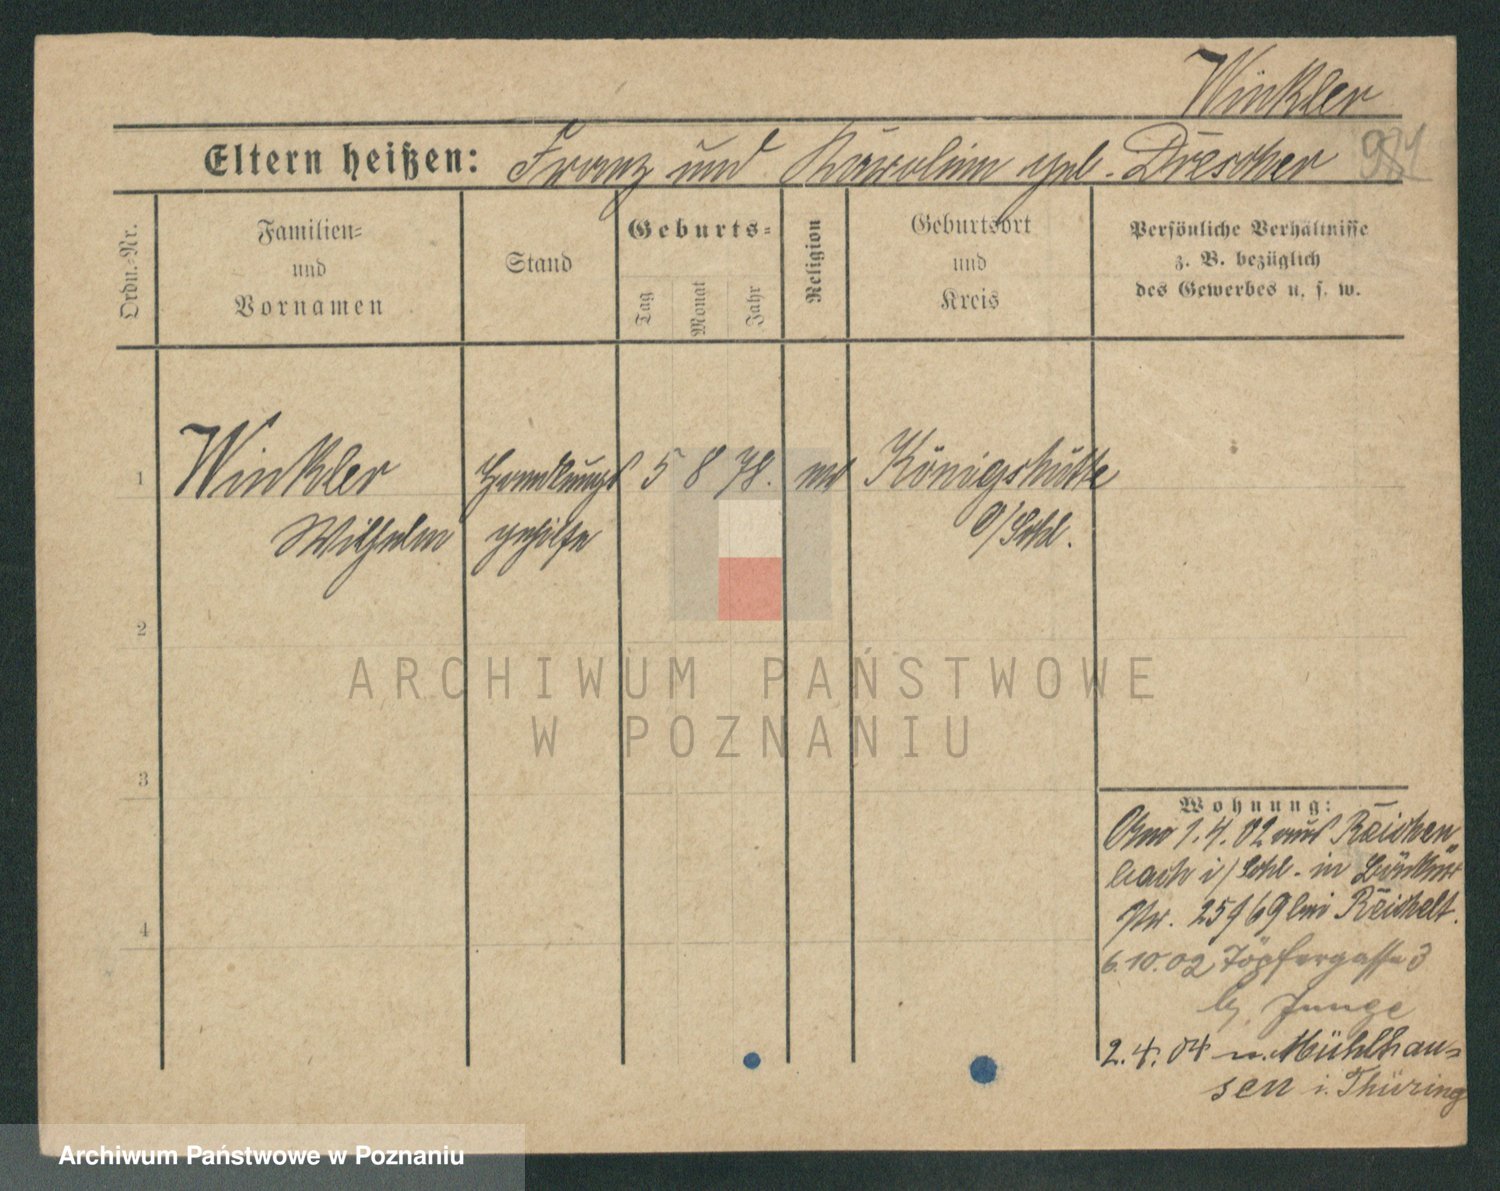 Winkler
Eltern heißen: Franz und Karolina geb. Drescher
981
Ordn.-Nr.
Familien- und Vornamen
Stand
Geburts-
Tag
Monat
Jahr
Religion
Geburtsort und Kreis
Persönliche Verhältnisse z. B. bezüglich des Gewerbes u. s. w.
1
Winkler
Handlungs
5 8 78.
Königshütte
Wilhelm
gehilfe
O/Schl.
2
ARCHIWUM PAŃSTWOWE
W POZNANIU
3
Wohnung:
Am 1.4.02 aus Reichen
bach i/Schl. in
4
Nr. 25/69 bei Reichelt.
6.10.02 Töpfergasse 3
b. Junge
2.4.04 n. Mühlhau-
sen i. Thüring
Archiwum Państwowe w Poznaniu